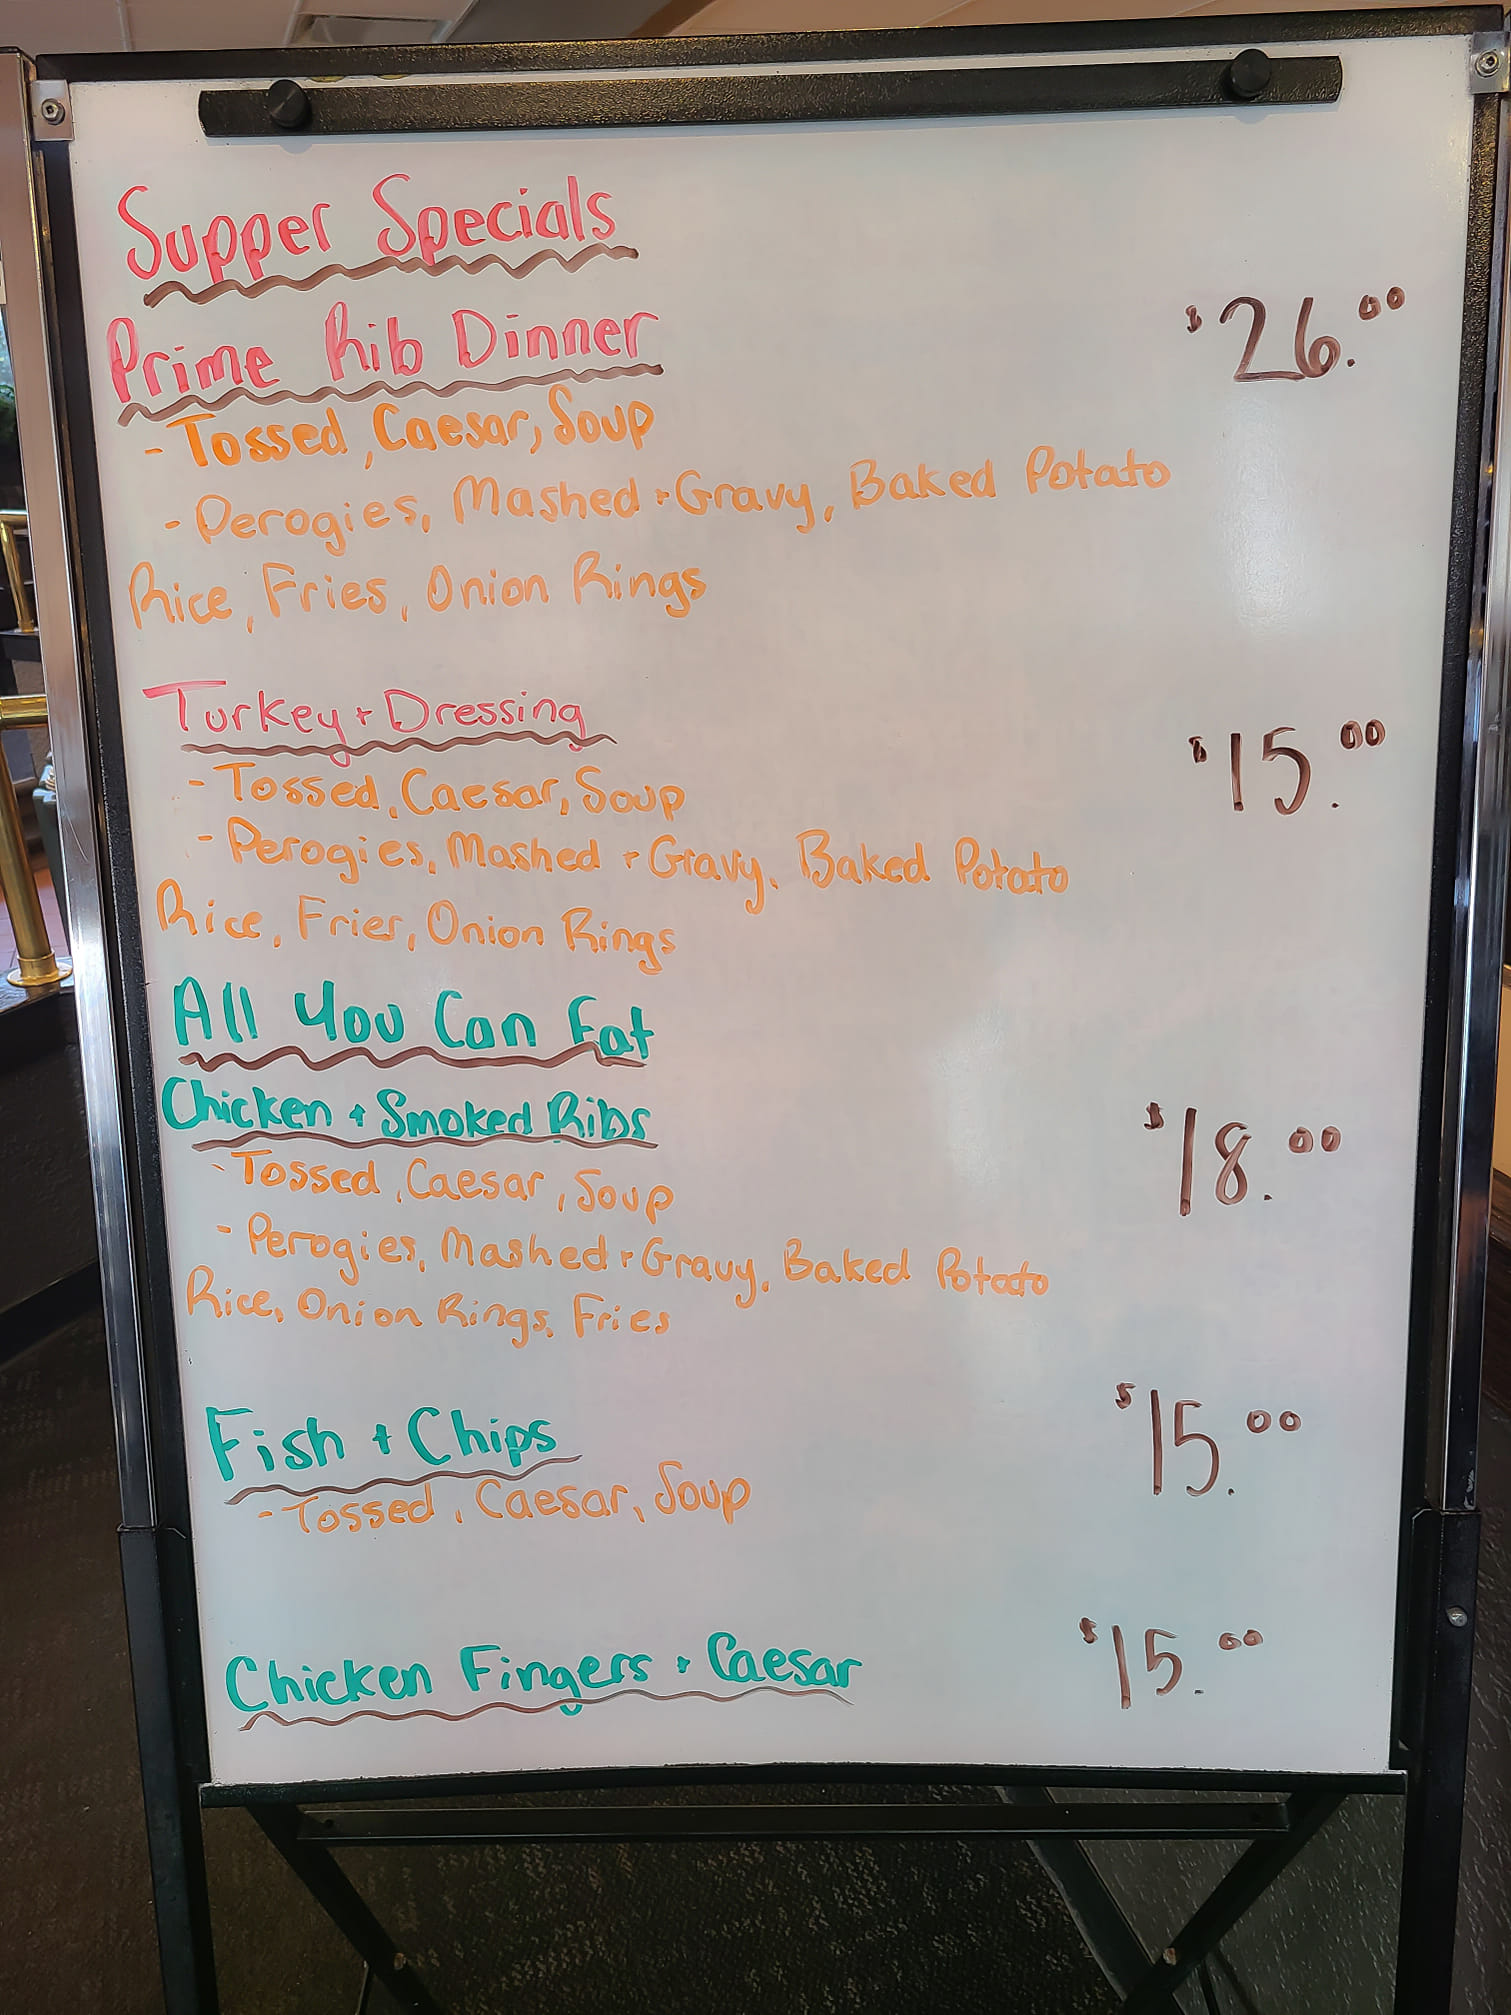 Supper Specials
Prime Rib Dinner $26.00
- Tossed, Caesar, Soup
- Perogies, Mashed + Gravy, Baked Potato
Rice, Fries, Onion Rings
Turkey + Dressing $15.00
- Tossed, Caesar, Soup
- Perogies, Mashed + Gravy, Baked Potato
Rice, Fries, Onion Rings
All You Can Eat
Chicken + Smoked Ribs $18.00
- Tossed, Caesar, Soup
- Perogies, Mashed + Gravy, Baked Potato
Rice, Onion Rings, Fries
Fish + Chips $15.00
- Tossed, Caesar, Soup
Chicken Fingers + Caesar $15.00